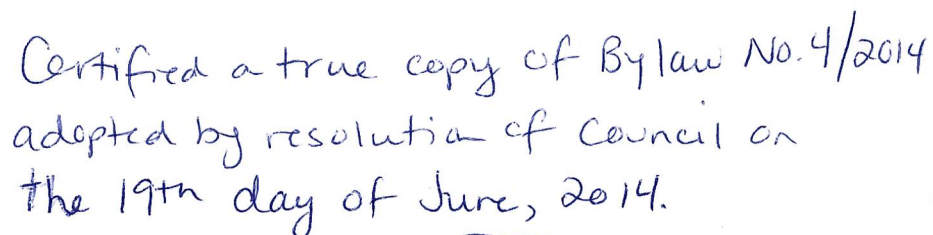 Certified a true copy of Bylaw No. 4/2014
adopted by resolution of Council on
the 19th day of June, 2014.